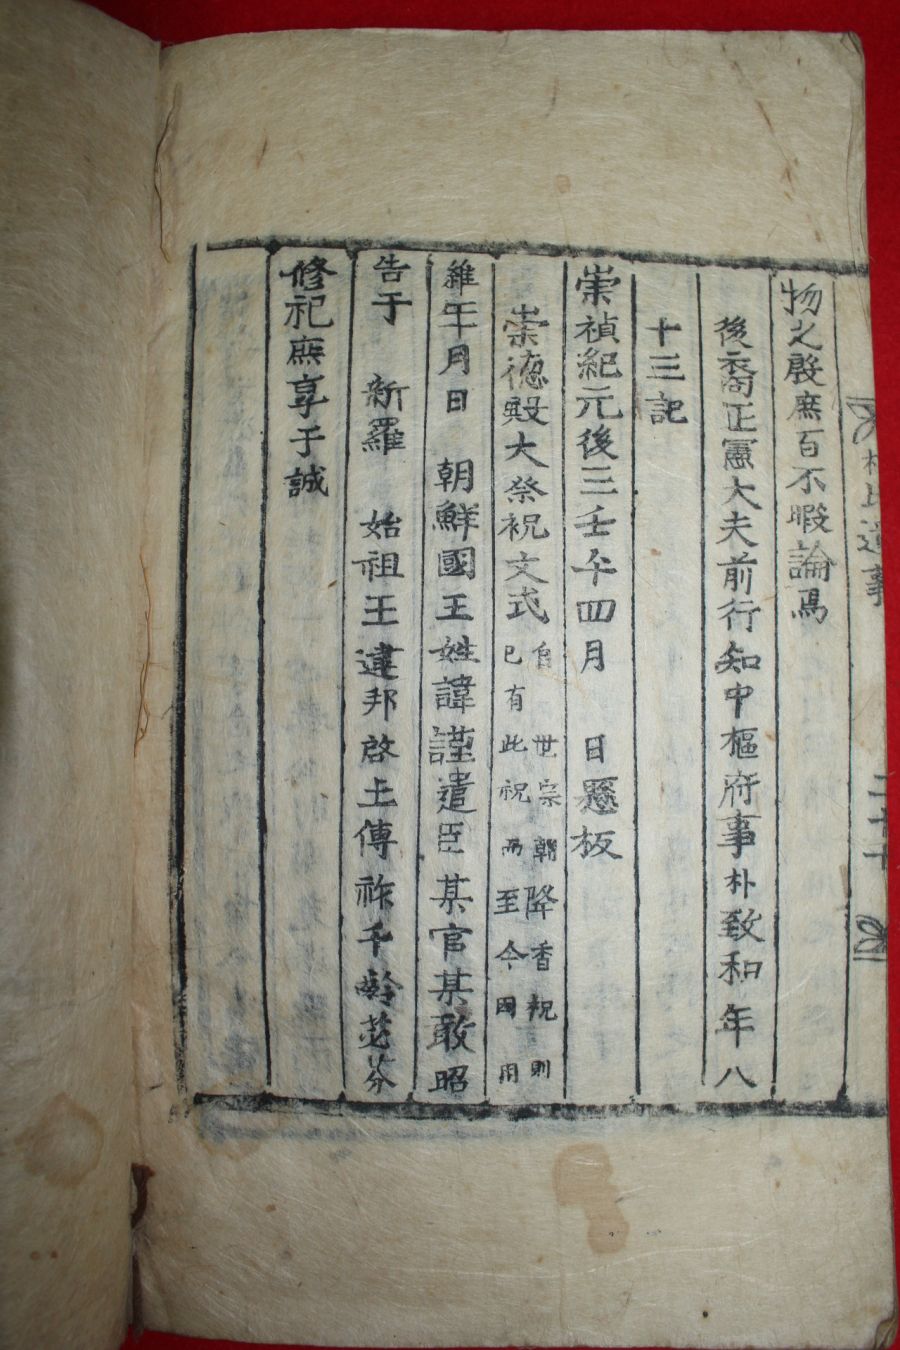 朴氏遺事
二十七
物之殷庶百不暇論焉
後裔正憲大夫前行知中樞府事朴致和年八
十三記
崇禎紀元後三壬午四月 日懸板
崇德殿大祭祝文式 自 世宗朝降香祝則
已有此祝而至今因用
維年月日 朝鮮國王姓諱謹遣臣某官某敢昭
告于 新羅 始祖王建邦啓土傳祚千齡苾芬
修祀庶享于誠